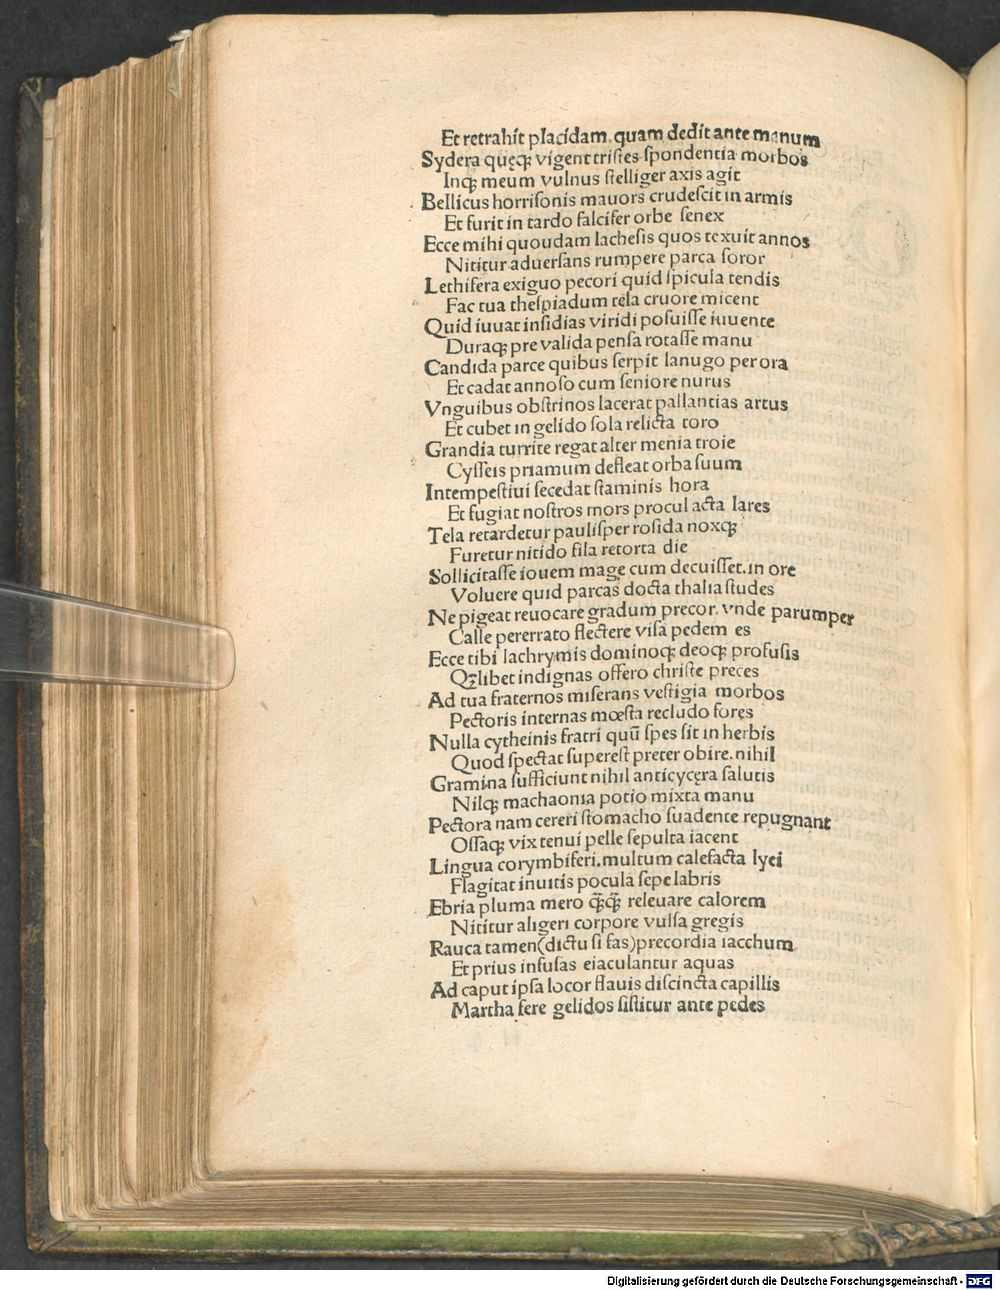 Et retrahit placidam. quam dedit ante manum
Sydera quęqꝫ vigent tristes spondentia morbos
Inqꝫ meum vulnus stelliger axis agit
Bellicus horrisonis mauors crudescit in armis
Et furit in tardo falcifer orbe senex
Ecce mihi quoudam lachesis quos texuit annos
Nititur aduersans rumpere parca soror
Lethifera exiguo pecori quid spicula tendis
Fac tua thespiadum tela cruore micent
Quid iuuat insidias viridi posuisse iuuente
Duraqꝫ pre valida pensa rotasse manu
Candida parce quibus serpit lanugo per ora
Et cadat annoso cum seniore nurus
Vnguibus obstrinos lacerat pallantias artus
Et cubet in gelido sola relicta toro
Grandia turrite regat alter menia troie
Cysseis priamum defleat orba suum
Intempestiui secedat staminis hora
Et fugiat nostros mors procul acta lares
Tela retardetur paulisper rosida noxqꝫ
Furetur nitido fila retorta die
Sollicitasse iouem mage cum decuisset. in ore
Voluere quid parcas docta thalia studes
Ne pigeat reuocare gradum precor. vnde parumper
Calle pererrato flectere visa pedem es
Ecce tibi lachrymis dominoqꝫ deoqꝫ profusis
Qꝫlibet indignas offero christe preces
Ad tua fraternos miserans vestigia morbos
Pectoris internas mœsta recludo fores
Nulla cytheinis fratri quū spes sit in herbis
Quod spectat superest preter obire. nihil
Gramina sufficiunt nihil anticycęra salutis
Nilqꝫ machaonia potio mixta manu
Pectora nam cereri stomacho suadente repugnant
Ossaqꝫ vix tenui pelle sepulta iacent
Lingua corymbiferi. multum calefacta lyei
Flagitat inuitis pocula sepe labris
Ebria pluma mero q̄qꝫ releuare calorem
Nititur aligeri corpore vulsa gregis
Rauca tamen (dictu si fas) precordia iacchum
Et prius infusas eiaculantur aquas
Ad caput ipsa locor flauis discincta capillis
Martha fere gelidos sistitur ante pedes
Digitalisierung gefördert durch die Deutsche Forschungsgemeinschaft - DFG